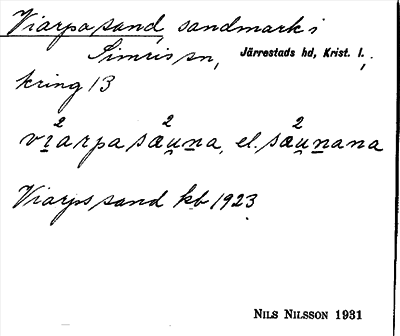 Viarpa sand, sandmark i
Simris sn, Järrestads hd, Krist. l.,
kring 13
vi̱²arpa sæ²u̱ṉa, el. sæ²u̱ṉana
Viarps sand kb 1923.
NILS NILSSON 1931